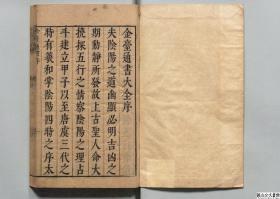 金臺通書大全序
夫陰陽之道幽顯必明吉凶之
期動靜所發故上古聖人命大
撓探五行之情察陰陽之理占
斗建立甲子以至唐虞三代之
時有羲和掌陰陽四時之序太